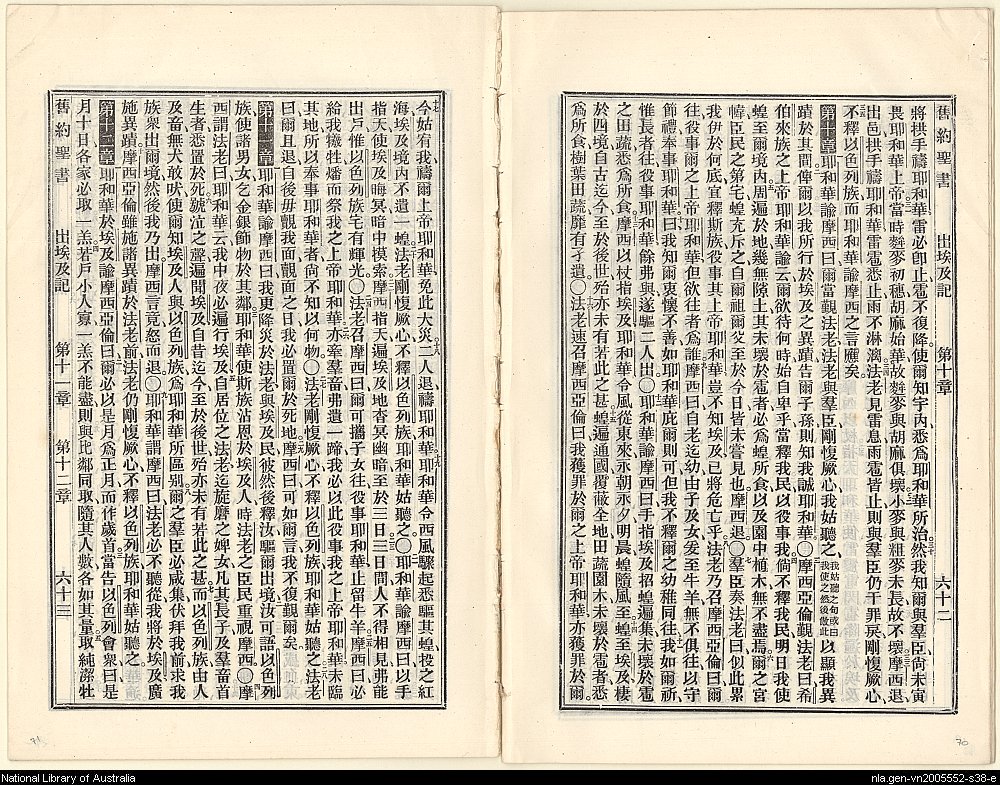 舊約聖書 出埃及記 第十章 六十二
將拱手禱耶和華雷必卽止雹不復降使爾知宇內悉爲耶和華所治然我知爾與羣臣尙未寅
畏耶和華上帝當時麰麥初穗胡麻始華故麰麥與胡麻俱壞小麥與粗麥未長故不壞摩西退
出邑拱手禱耶和華雷雹悉止雨不淋漓法老見雷息雨雹皆止則與羣臣仍干罪戾剛愎厥心
不釋以色列族而耶和華諭摩西之言應矣
第十章 耶和華諭摩西曰爾當覲法老法老與羣臣剛愎厥心我姑聽之 我姑聽之句或曰我使之然後倣此 以顯我異
蹟於其間俾爾以我所行於埃及之異蹟告爾子孫則知我誠耶和華〇摩西亞倫覲法老曰希
伯來族之上帝耶和華諭云爾欲待何時始自卑乎當釋我民以役事我倘不釋我民明日我使
蝗至爾境內周遍於地幾無隙土其未壞於雹者必爲蝗所食以及園中植木無不盡焉爾之宮
幃臣民之第宅蝗充斥之自爾祖爾父至於今日皆未嘗見也摩西退〇羣臣奏法老曰似此累
我伊於何底宜釋斯族役事其上帝耶和華豈不知埃及已將危亡乎法老乃召摩西亞倫曰爾
往役事爾之上帝耶和華但欲往者爲誰摩西曰自老迄幼由子及女爰至牛羊無不俱往以守
節禮役事耶和華曰我知爾衷懷不善如耶和華庇爾則可但我不釋爾之幼稚同往我如爾祈
惟長者往役事耶和華餘弗與遂驅二人出〇耶和華諭摩西曰手指埃及招蝗遍集未壞於雹
之田蔬悉爲所食摩西以杖指埃及耶和華令風從東來永朝永夕明晨蝗隨風至蝗至埃及棲
於四境自古迄今至於後世殆亦未有若此之甚蝗遍通國覆徹全地田蔬園木未壞於雹者悉
爲所食樹葉田蔬靡有孑遺〇法老速召摩西亞倫曰我獲罪於爾之上帝耶和華亦獲罪於爾
70
今姑宥我禱爾上帝耶和華免此大災二人退禱耶和華耶和華令西風驟起悉驅其蝗投之紅
海埃及境內不遺一蝗法老剛愎厥心不釋以色列族耶和華姑聽之〇耶和華諭摩西曰以手
指天使埃及晦冥暗中摸索摩西指天遍埃及地杳冥幽暗至於三日三日間人不得相見弗能
出戶惟以色列族宅有輝光〇法老召摩西曰爾可攜子女往役事耶和華止留牛羊摩西曰必
給我犧牲燔而祭我之上帝耶和華亦牽羣畜弗遺一蹄我必以此役事我之上帝耶和華未臨
其地所以奉事耶和華者尙不知以何物〇法老剛愎厥心不釋以色列族耶和華姑聽之法老
曰爾且退自後毋覲我面覲面之日我必置爾於死地摩西曰可如爾言我不復覲爾矣
第十一章 耶和華諭摩西曰我更降災於法老與埃及民彼然後釋汝驅爾出境汝可語以色列
族使諸男女乞金銀飾物於其鄰耶和華使斯族沾恩於埃及人時法老之臣民重視摩西〇摩
西謂法老曰耶和華云我中夜必遍行埃及自居位之法老迄旋磨之婢女凡其長子及羣畜首
生者悉置於死號泣之聲遍聞埃及自昔迄今至於後世殆亦未有若此之甚而以色列族由人
及畜無犬敢吠使爾知埃及人與以色列族爲耶和華所區別爾之羣臣必咸集伏拜我前求我
族衆出爾境然後我乃出摩西言竟怒而退〇耶和華謂摩西曰法老必不聽從我將於埃及廣
施異蹟摩西亞倫雖施諸異蹟於法老前法老仍剛愎厥心不釋以色列族耶和華姑聽之
第十二章 耶和華於埃及諭摩西亞倫曰爾必以是月爲正月而作歲首當告以色列會衆曰是
月十日各家必取一羔若戶小人寡一羔不能盡則與比鄰同取隨其人數各如其量取純潔牡
舊約聖書 出埃及記 第十一章 第十二章 六十三
National Library of Australia
nla.gen-vn2005552-s38-e